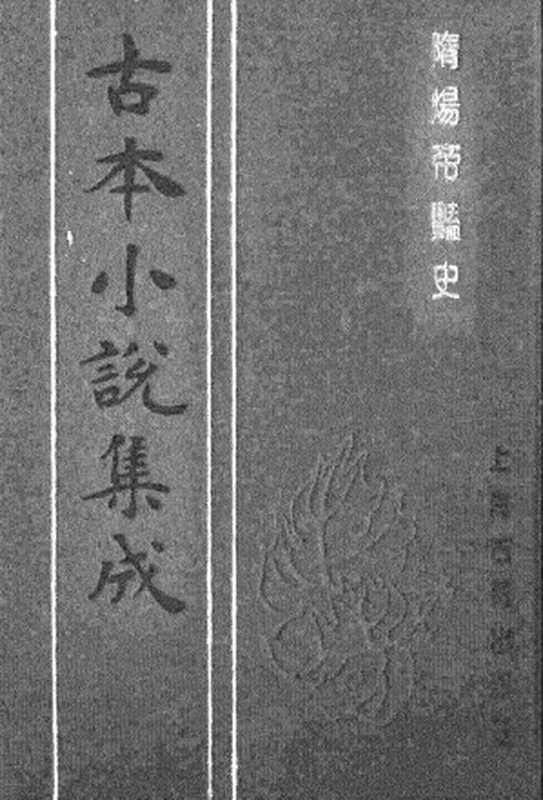 隋煬帝豔史
古本小說集成
上海古籍出版社